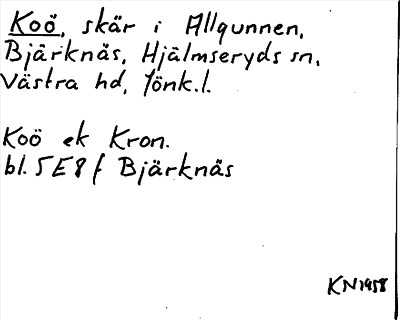 Koö, skär i Allgunnen,
Bjärknäs, Hjälmseryds sn,
Västra hd, Jönk.l.
Koö ek Kron.
bl. 5E8f Bjärknäs
KN 1958